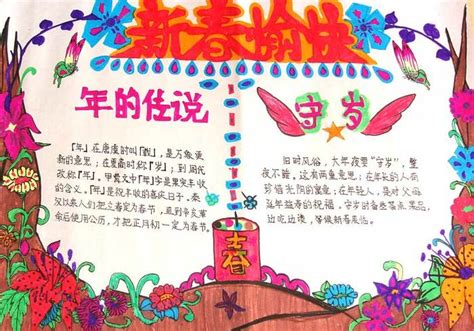 新春愉快
年的传说
「年」在唐虞时叫「载」，是万象更
新的意思；在夏商时称「岁」；到周代
改称「年」。甲骨文中「年」字是果实丰收
的含义。「年」是祝丰收的喜庆日子。秦
汉以来人们把立春定为春节，直到辛亥革
命后使用公历，才把正月初一定为春节。
守岁
旧时风俗，大年夜要“守岁”，整
夜不睡，这有两重意思：在年长的人有
珍惜光阴的意思；在年轻人，是对父母
延年益寿的祝福，守岁时备些茶点果品，
边吃边谈，等候新春来临。
春